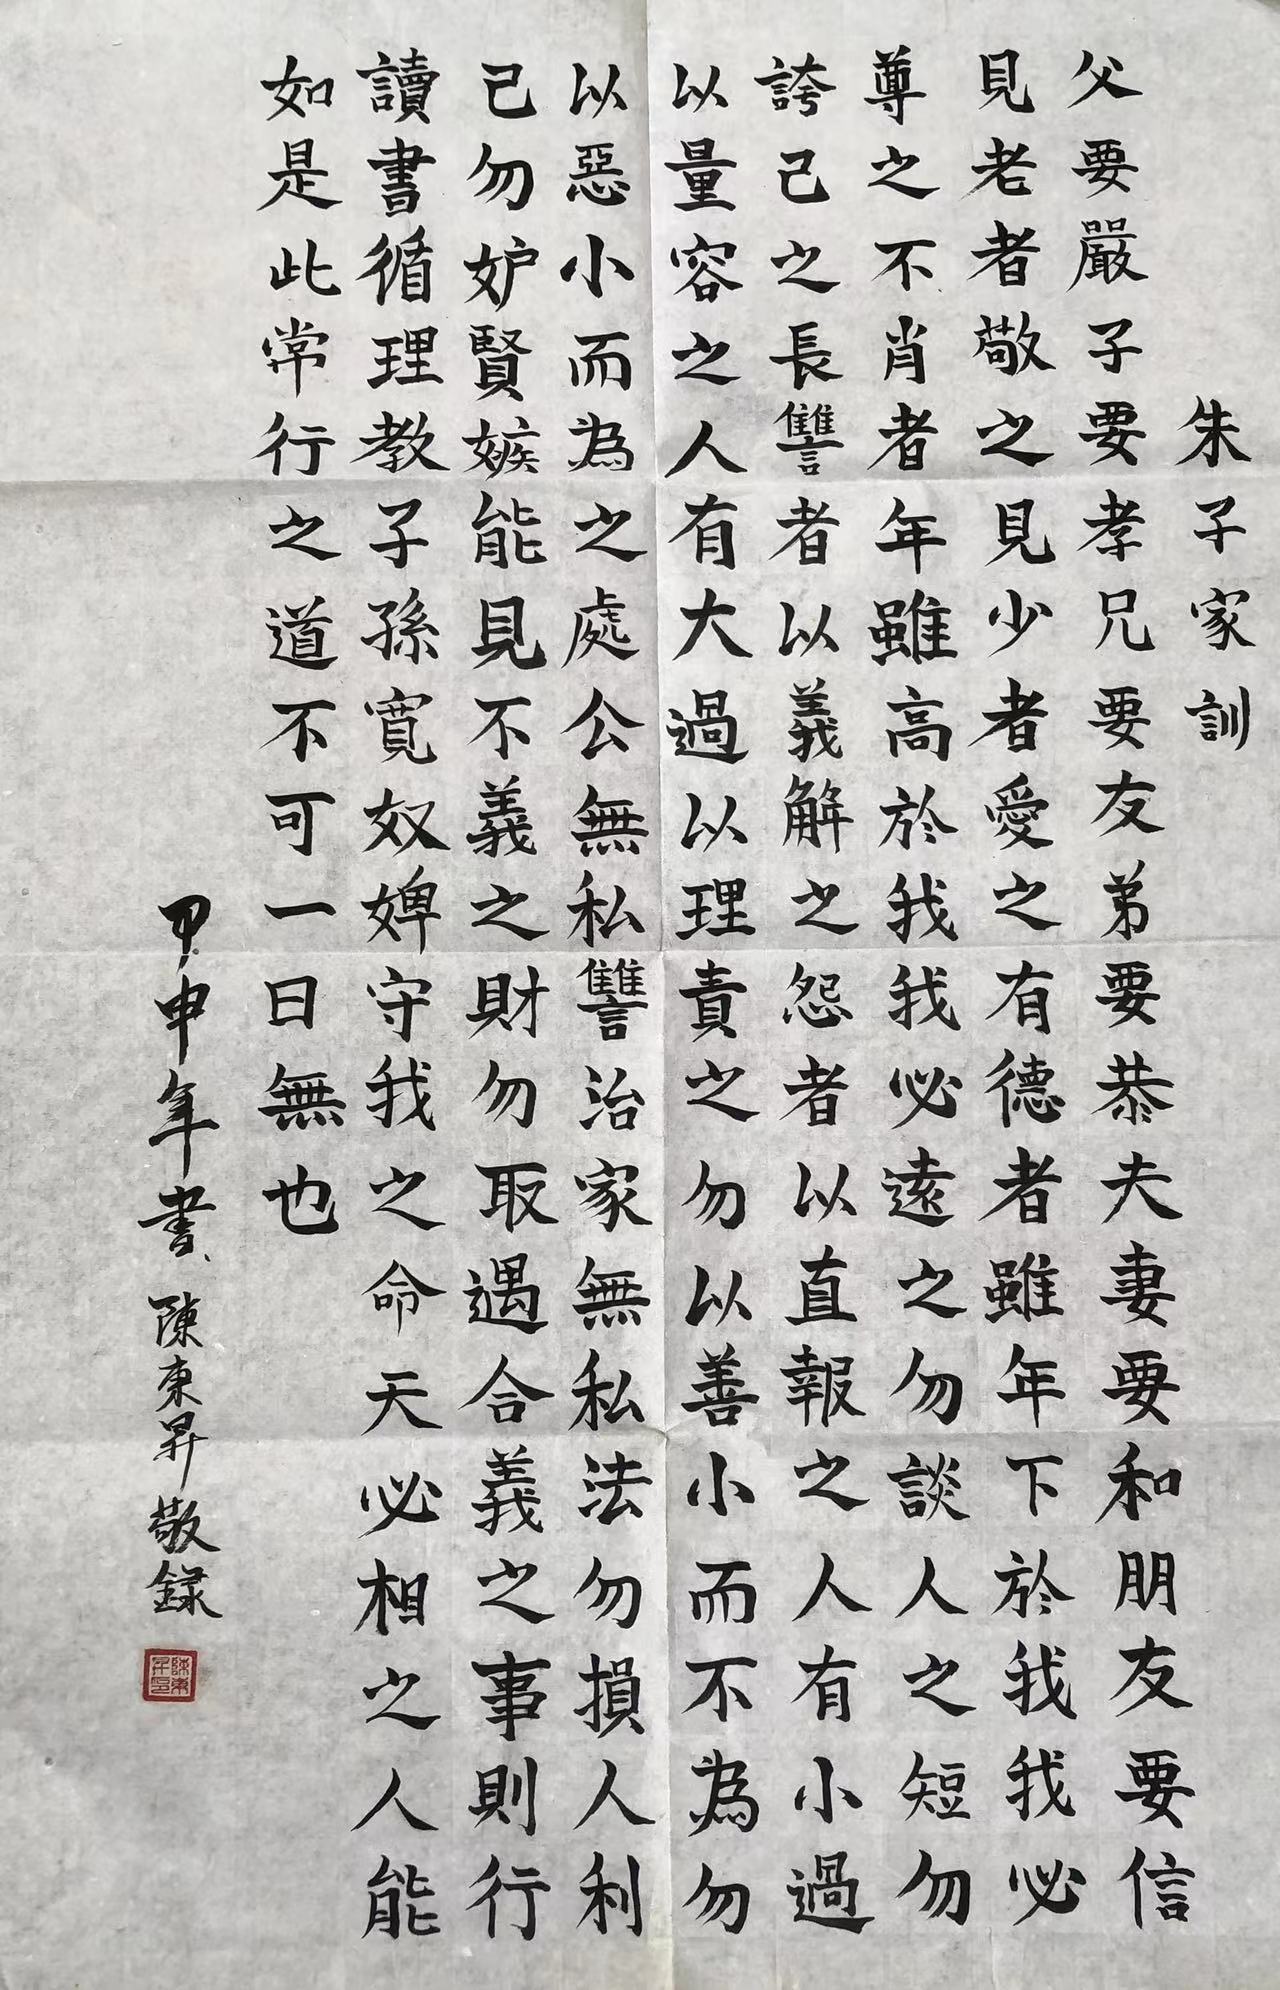 朱子家訓
父要嚴子要孝兄要友弟要恭夫妻要和朋友要信
見老者敬之見少者愛之有德者雖年下於我我必
尊之不肖者年雖高於我我必遠之勿談人之短勿
誇己之長讐者以義解之怨者以直報之人有小過
以量容之人有大過以理責之勿以善小而不為勿
以惡小而為之處公無私讐治家無私法勿損人利
己勿妒賢嫉能見不義之財勿取遇合義之事則行
讀書循理教子孫寬奴婢守我之命天必相之人能
如是此常行之道不可一日無也
甲申年書陳東昇敬録
陳東昇印